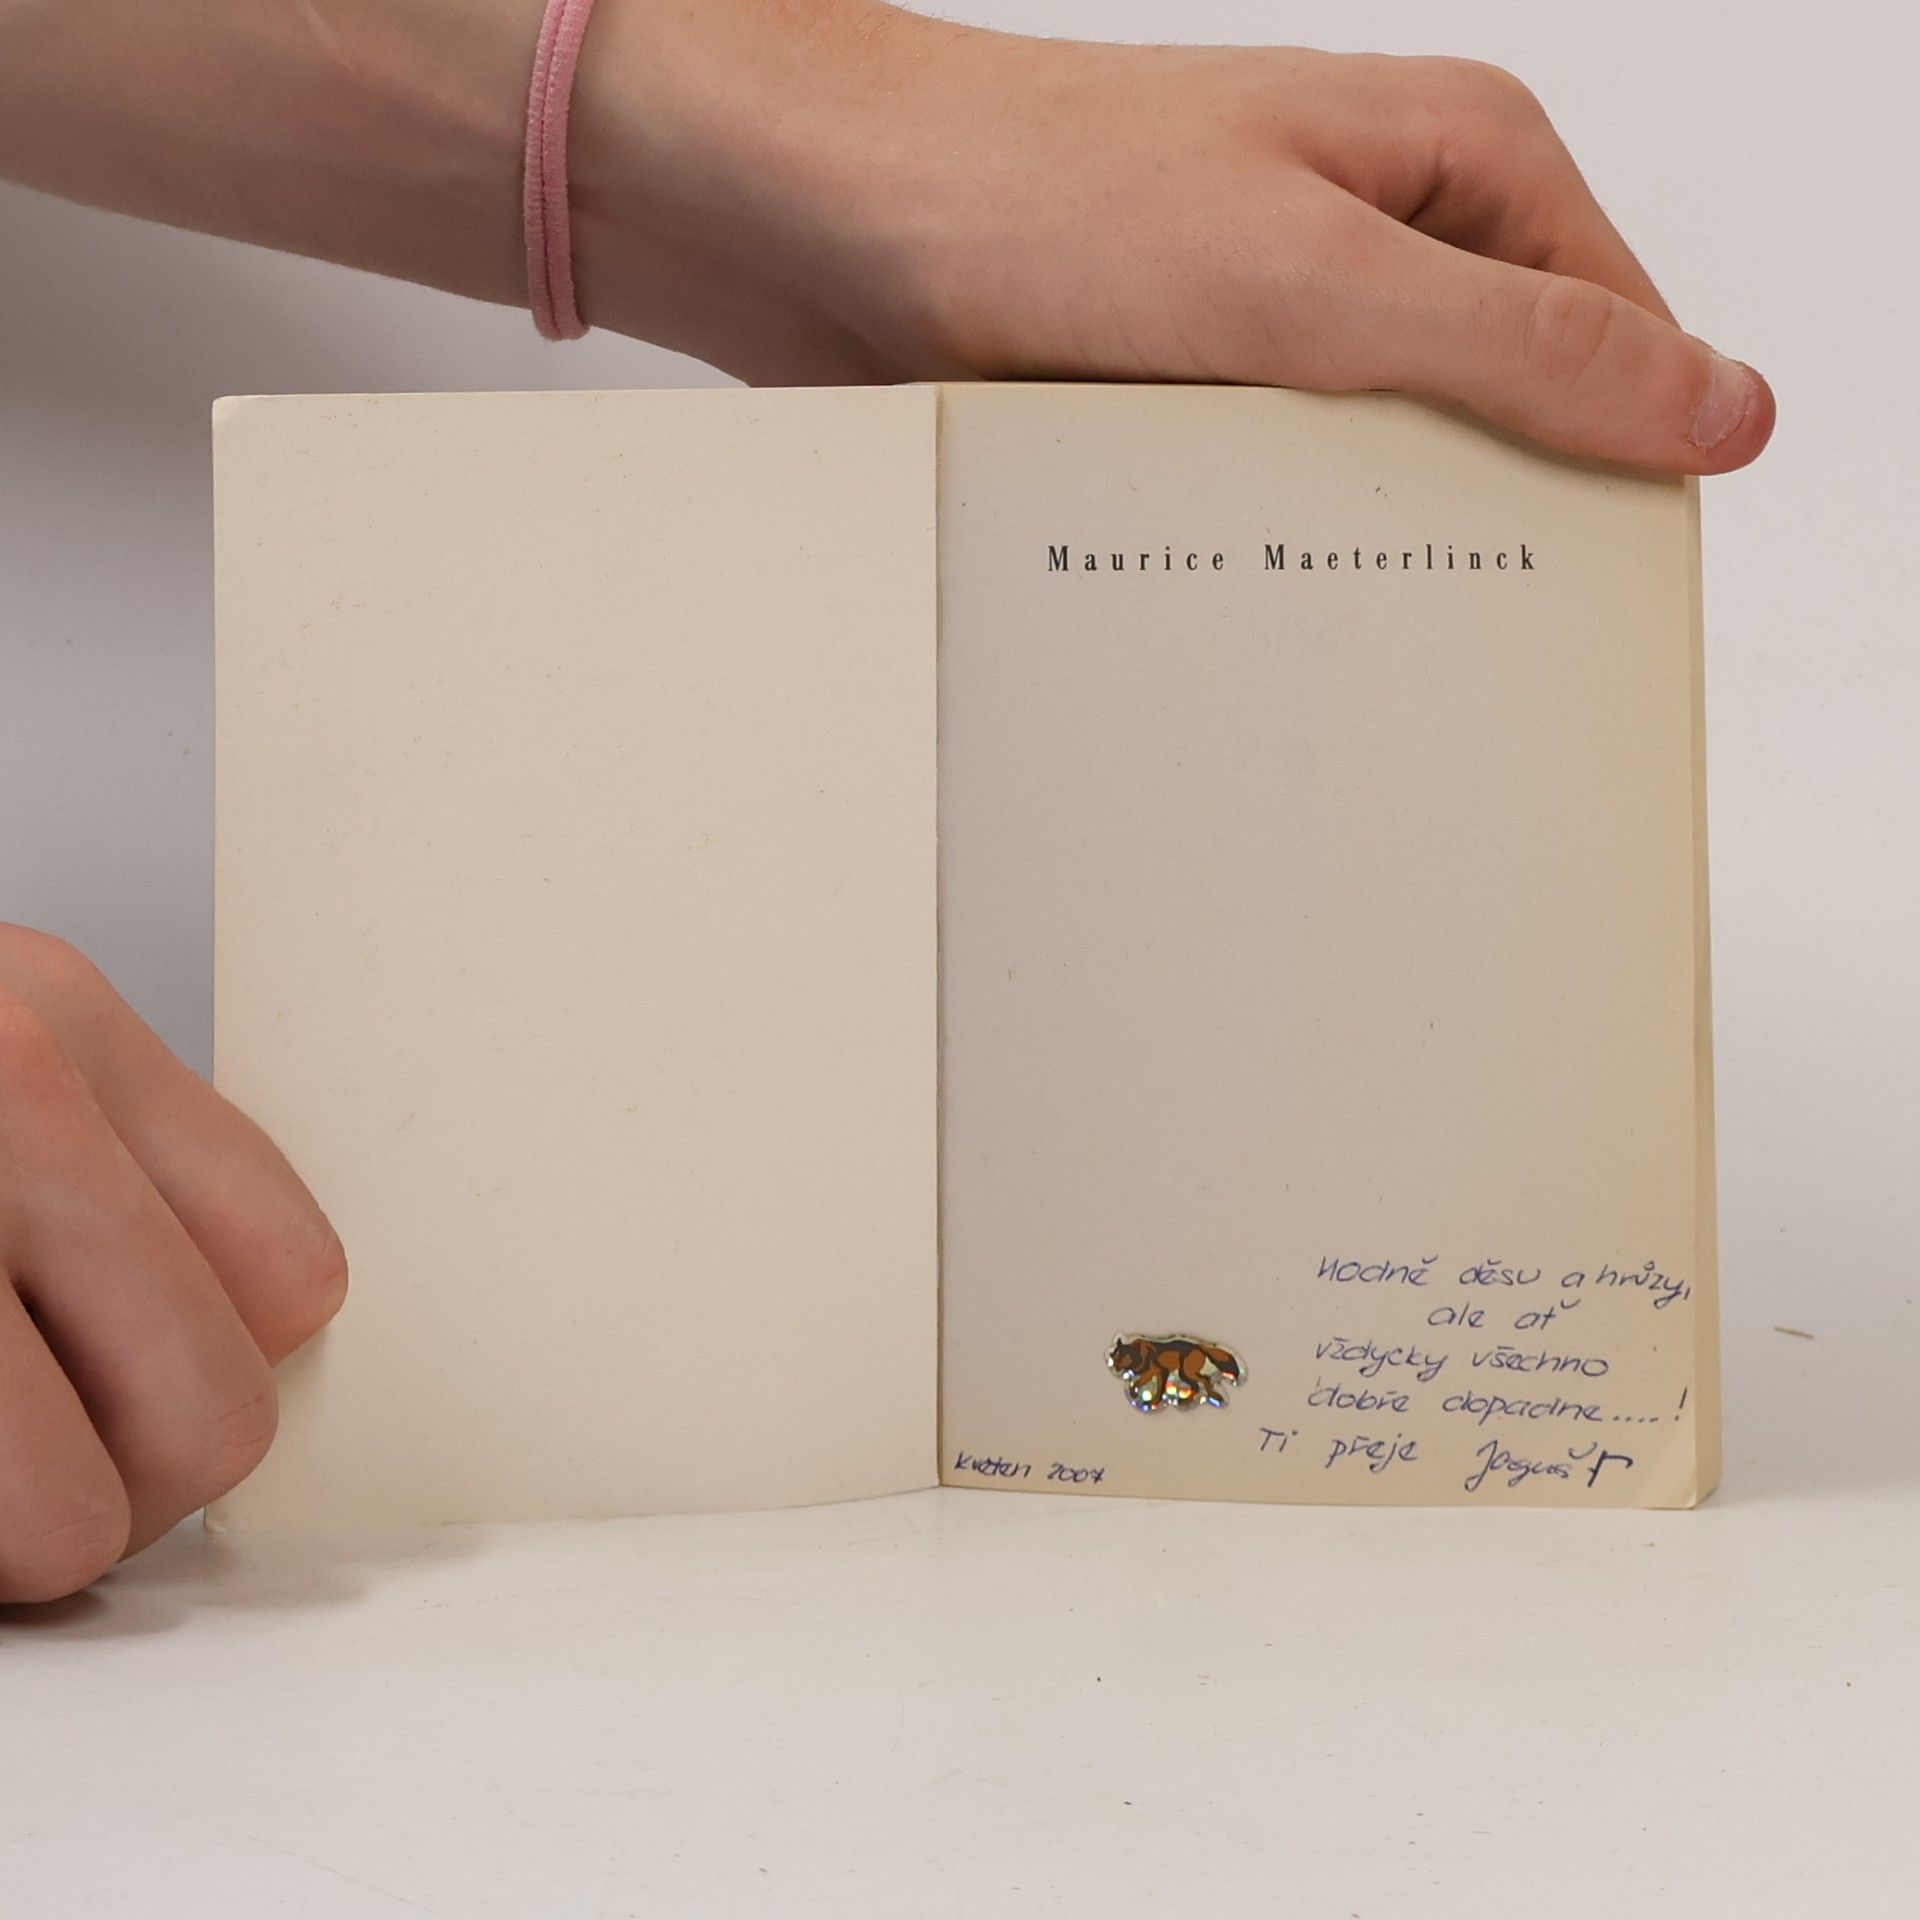 Maurice Maeterlinck
Hodně děsu a hrůzy,
ale ať
vždycky všechno
dobře dopadne....!
Ti přeje
Květen 2007